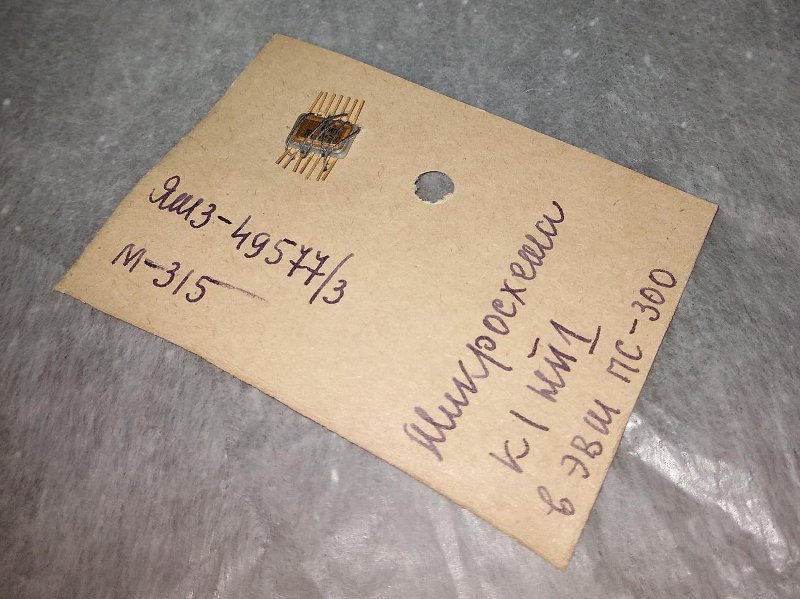 ЯМЗ-49577/3
М-315
Микросхема
К1ЛЙ1
в ЭВМ ПС-300